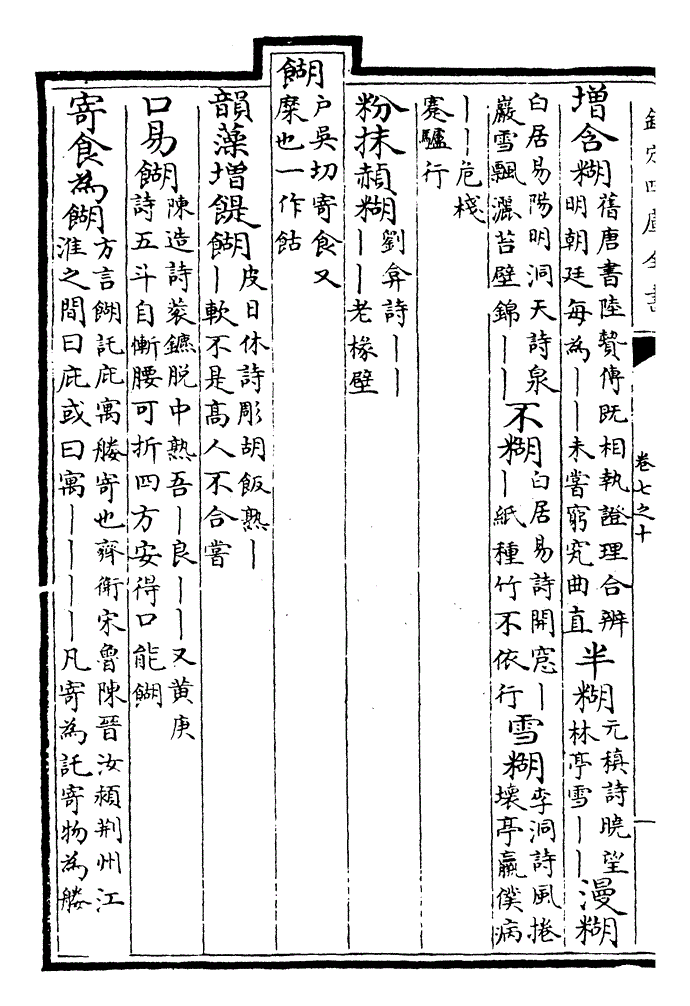 欽定四庫全書
卷七之十
一
增含糊舊唐書陸贄傳既相執證理合辨明朝廷每為丨丨未嘗窮究曲直半糊元稹詩曉望林亭雪丨丨漫糊
白居易陽明洞天詩泉巖雪飄灑苔壁錦丨丨不糊白居易詩開窓丨丨紙種竹不依行雪糊李洞詩風捲壞亭羸僕病
丨丨危棧蹇驢行
粉抹頳糊劉弇詩丨丨丨丨老椽壁
餬户吳切寄食又糜也一作
韻藻增餬皮日休詩彫胡飯熟丨丨軟不是髙人不合嘗
口易餬陳造詩蓑鑣脱中熟吾丨良丨丨又黄庚詩五斗自慚腰可折四方安得口能餬
寄食為餬方言餬託庇寓媵寄也齊衛宋魯陳晉汝頴荆州江淮之間曰庇或曰寓丨丨丨丨凡寄為託寄物為媵